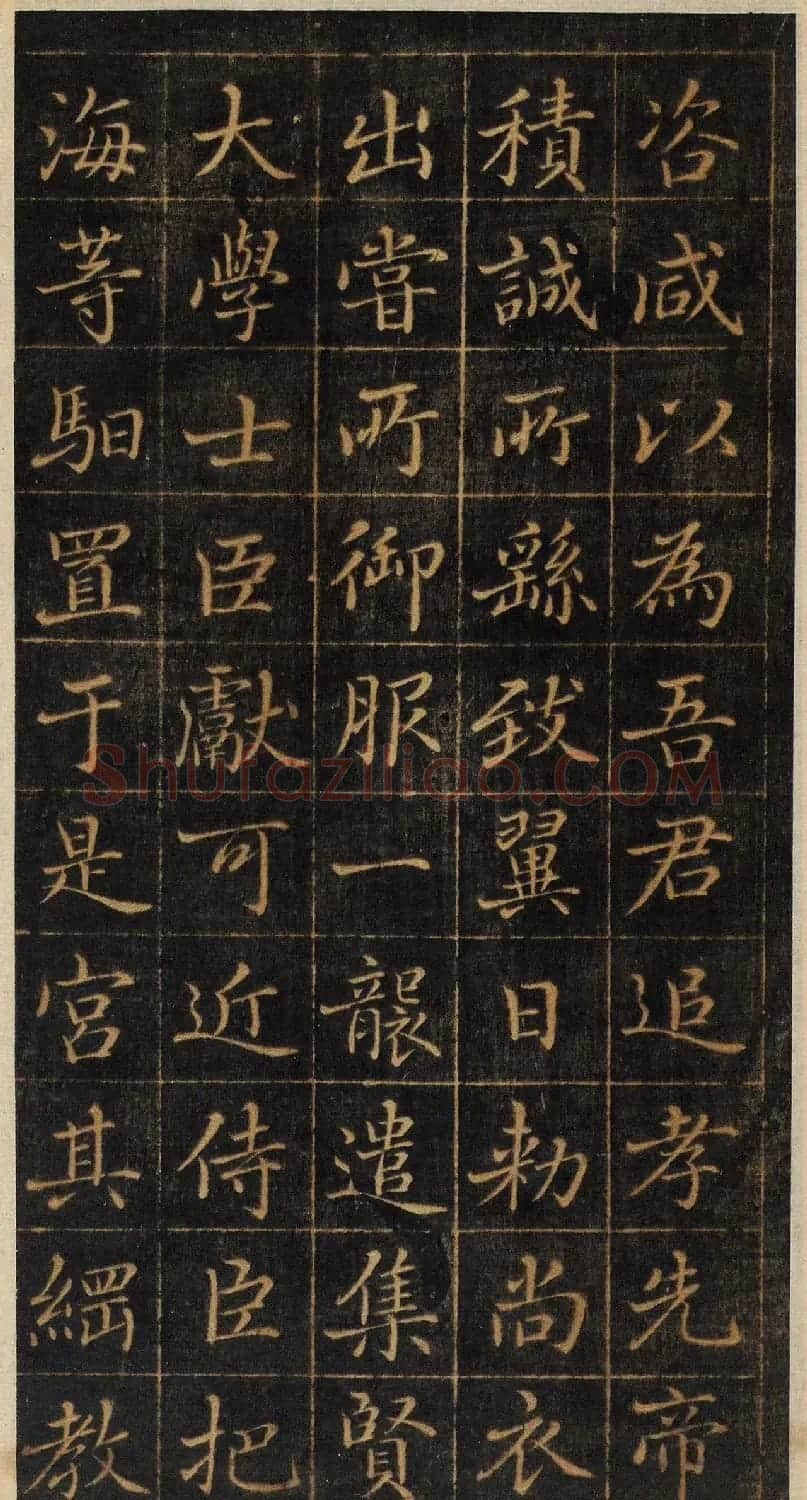 咨咸以為吾君追孝先帝
積誠所繇致翼日勑尚衣
出嘗所御服一襲遣集賢
大學士臣獻可近侍臣把
海等馹置于是宮其綱教
Shufaziliao.COM